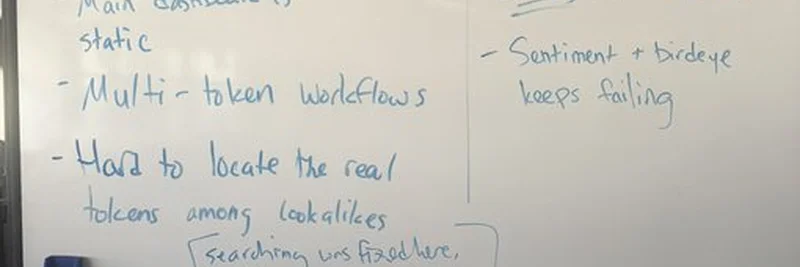 Main dashboard is
static
- Multi-token workflows
- Hard to locate the real
tokens among lookalikes
searching was fixed here,
- Sentiment + birdeye
keeps failing